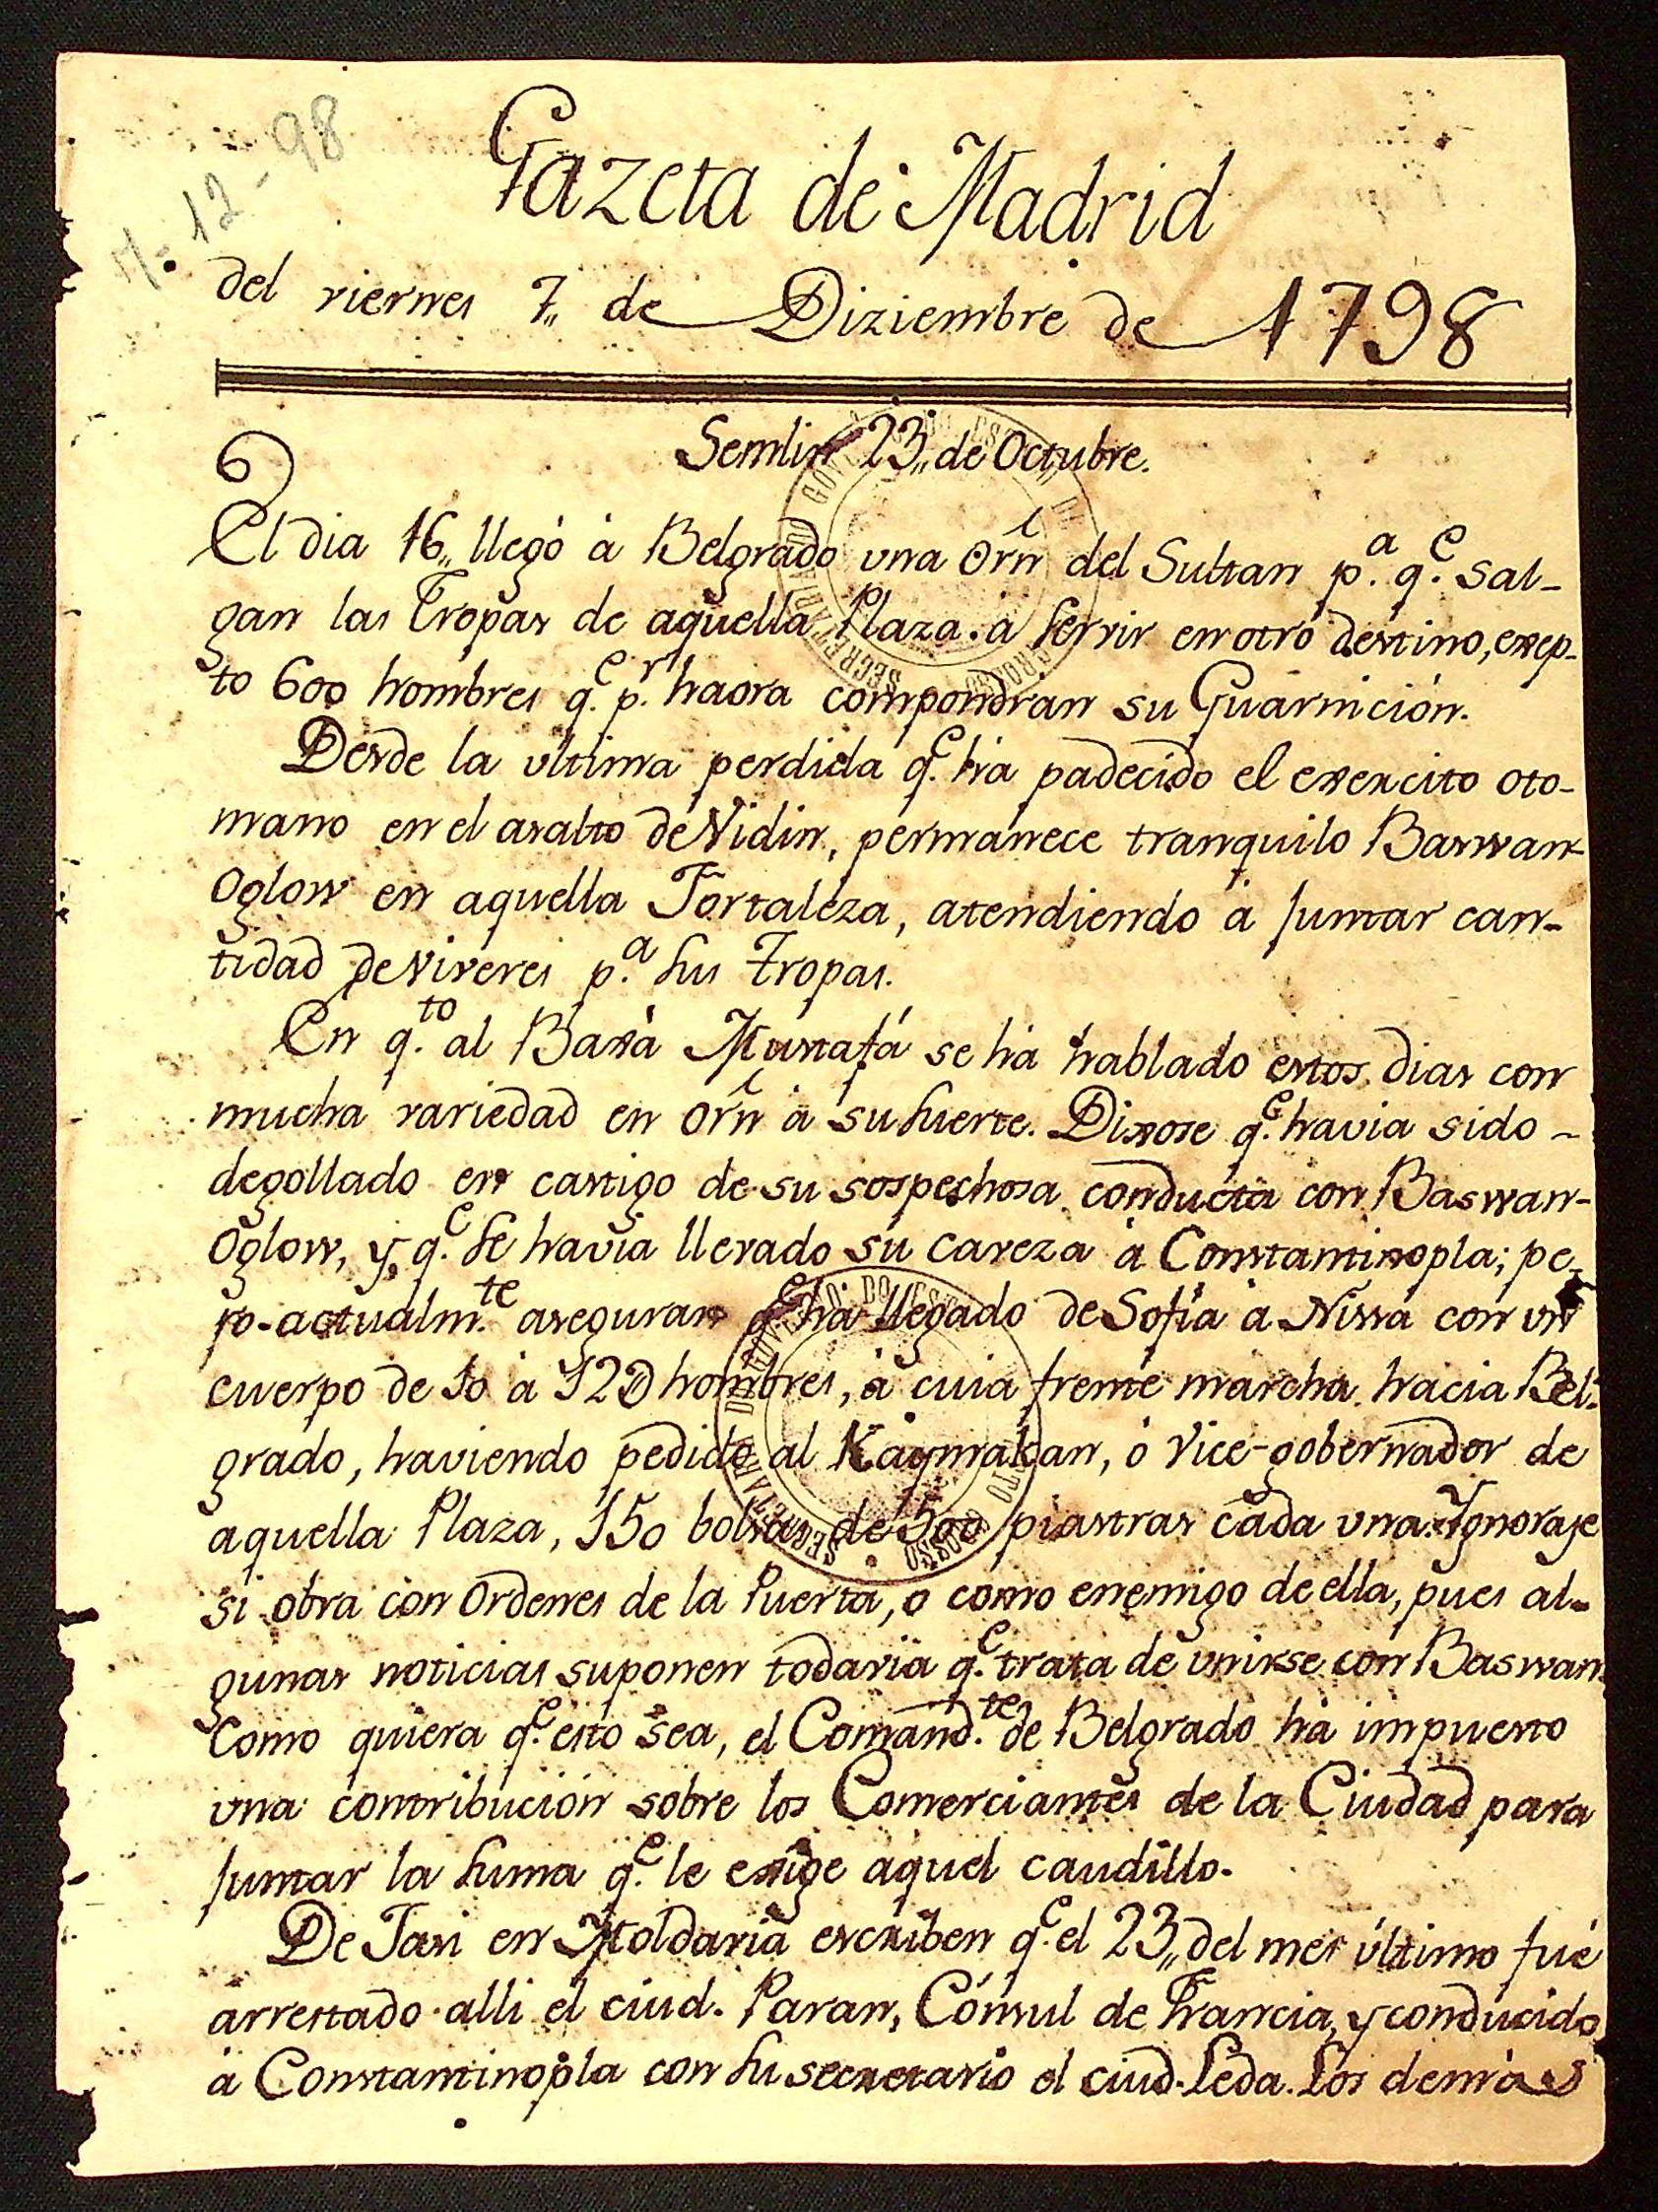 7-12-98
Gazeta de Madrid
del viernes 7,, de Diziembre de 1798
Semlin 23,, de Octubre.
El dia 16,, llegó à Belgrado vna orñ del Sultan p.ᵃ q.ᵉ sal-
gan las Tropas de aquella Plaza à servir en otro destino, exep-
to 600 hombres q.ᵉ p.ʳ haora compondran su Guarnicion.
Desde la vltima perdida q.ᵉ ha padecido el exercito oto-
mano en el asalto de Vidin, permanece tranquilo Baswan-
Oglow en aquella Fortaleza, atendiendo à juntar can-
tidad de viveres p.ᵃ sus tropas.
En q.ᵗᵒ al Baxà Mustafá se ha hablado estos dias con
mucha variedad en orñ à su suerte. Dixose q.ᵉ havia sido -
degollado en castigo de su sospechosa conducta con Baswan-
Oglow, y q.ᵉ se havia llevado su caveza à Constantinopla; pe-
ro actualm.ᵗᵉ aseguran q.ᵉ ha llegado de Sofia à Nissa con vn
cuerpo de 10 à 12D hombres, à cuia frente marcha hacia Bel-
grado, haviendo pedido al Kaymakan, ó Vice-gobernador de
aquella Plaza, 150 bolsas de 500 piastras cada vna. Ignorase
si obra con ordenes de la Puerta, o como enemigo de ella, pues al-
gunas noticias suponen todavia q.ᵉ trata de vnirse con Baswan.
Como quiera q.ᵉ esto sea, el Comand.ᵗᵉ de Belgrado ha impuesto
vna contribucion sobre los Comerciantes de la Ciudad para
juntar la suma q.ᵉ le exige aquel caudillo.
De Jasi en Moldavia escriben q.ᵉ el 23,, del mes último fué
arrestado alli el ciud. Paran, Cónsul de Francia, y conducido
à Constantinopla con su secretario el ciud. Leda. Los demàs
SECRETARIA DO GOVERNO DO ESTADO DE MATO GROSSO
SECRETARIA DO GOVERNO DO ESTADO DE MATO GROSSO